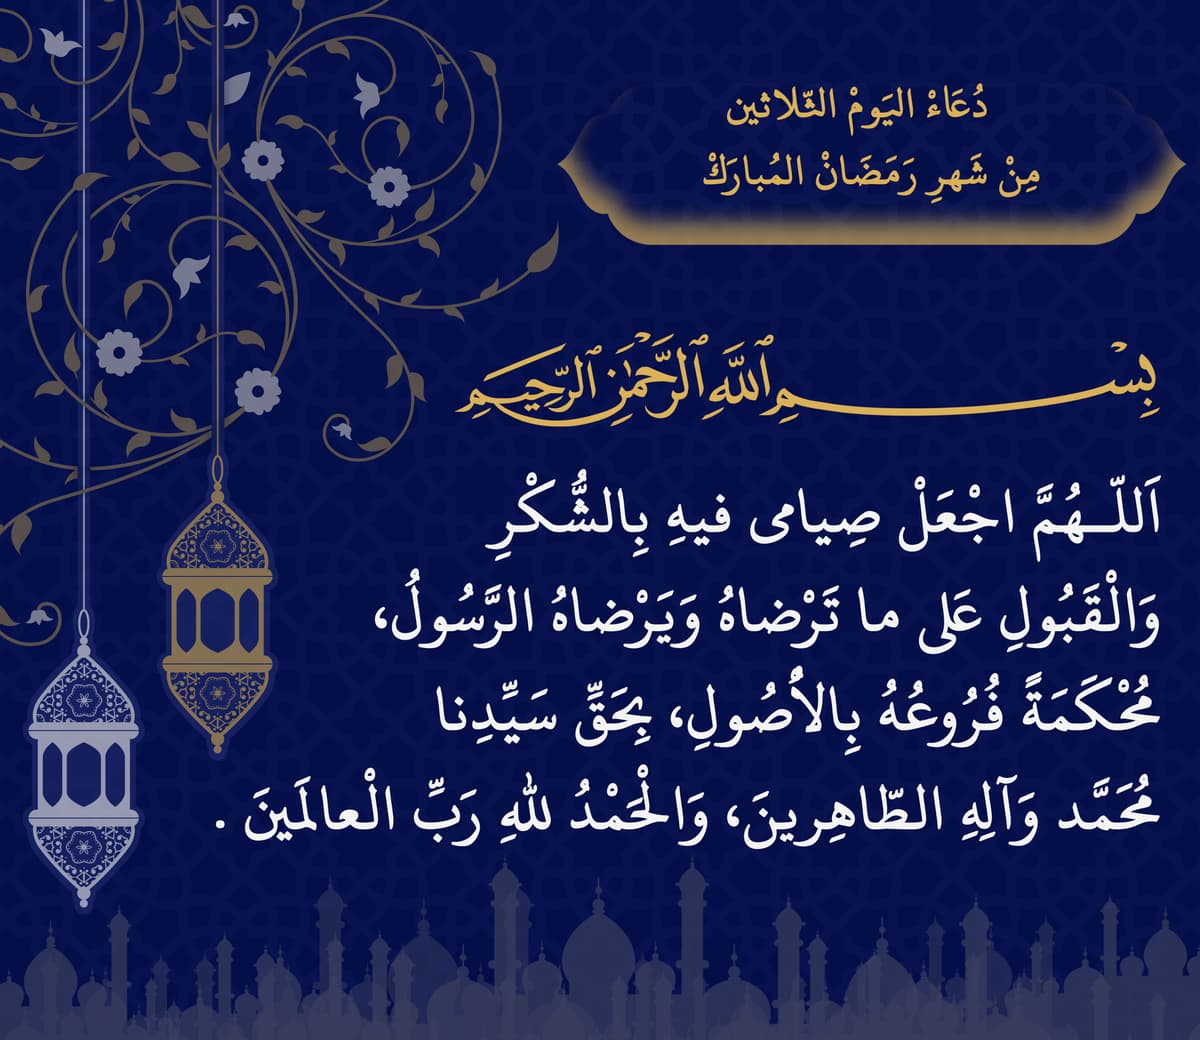 دُعَاءْ اليَومْ الثّلاثين
مِنْ شَهرِ رَمَضَانْ المُبارَكْ
بِسْمِ ٱللَّهِ ٱلرَّحْمَٰنِ ٱلرَّحِيمِ
اَللّـهُمَّ اجْعَلْ صِيامى فيهِ بِالشُّكْرِ
وَالْقَبُولِ عَلى ما تَرْضاهُ وَيَرْضاهُ الرَّسُولُ،
مُحْكَمَةً فُرُوعُهُ بِالأُصُولِ، بِحَقِّ سَيِّدِنا
مُحَمَّد وَآلِهِ الطّاهِرينَ، وَالْحَمْدُ للهِ رَبِّ الْعالَمينَ .